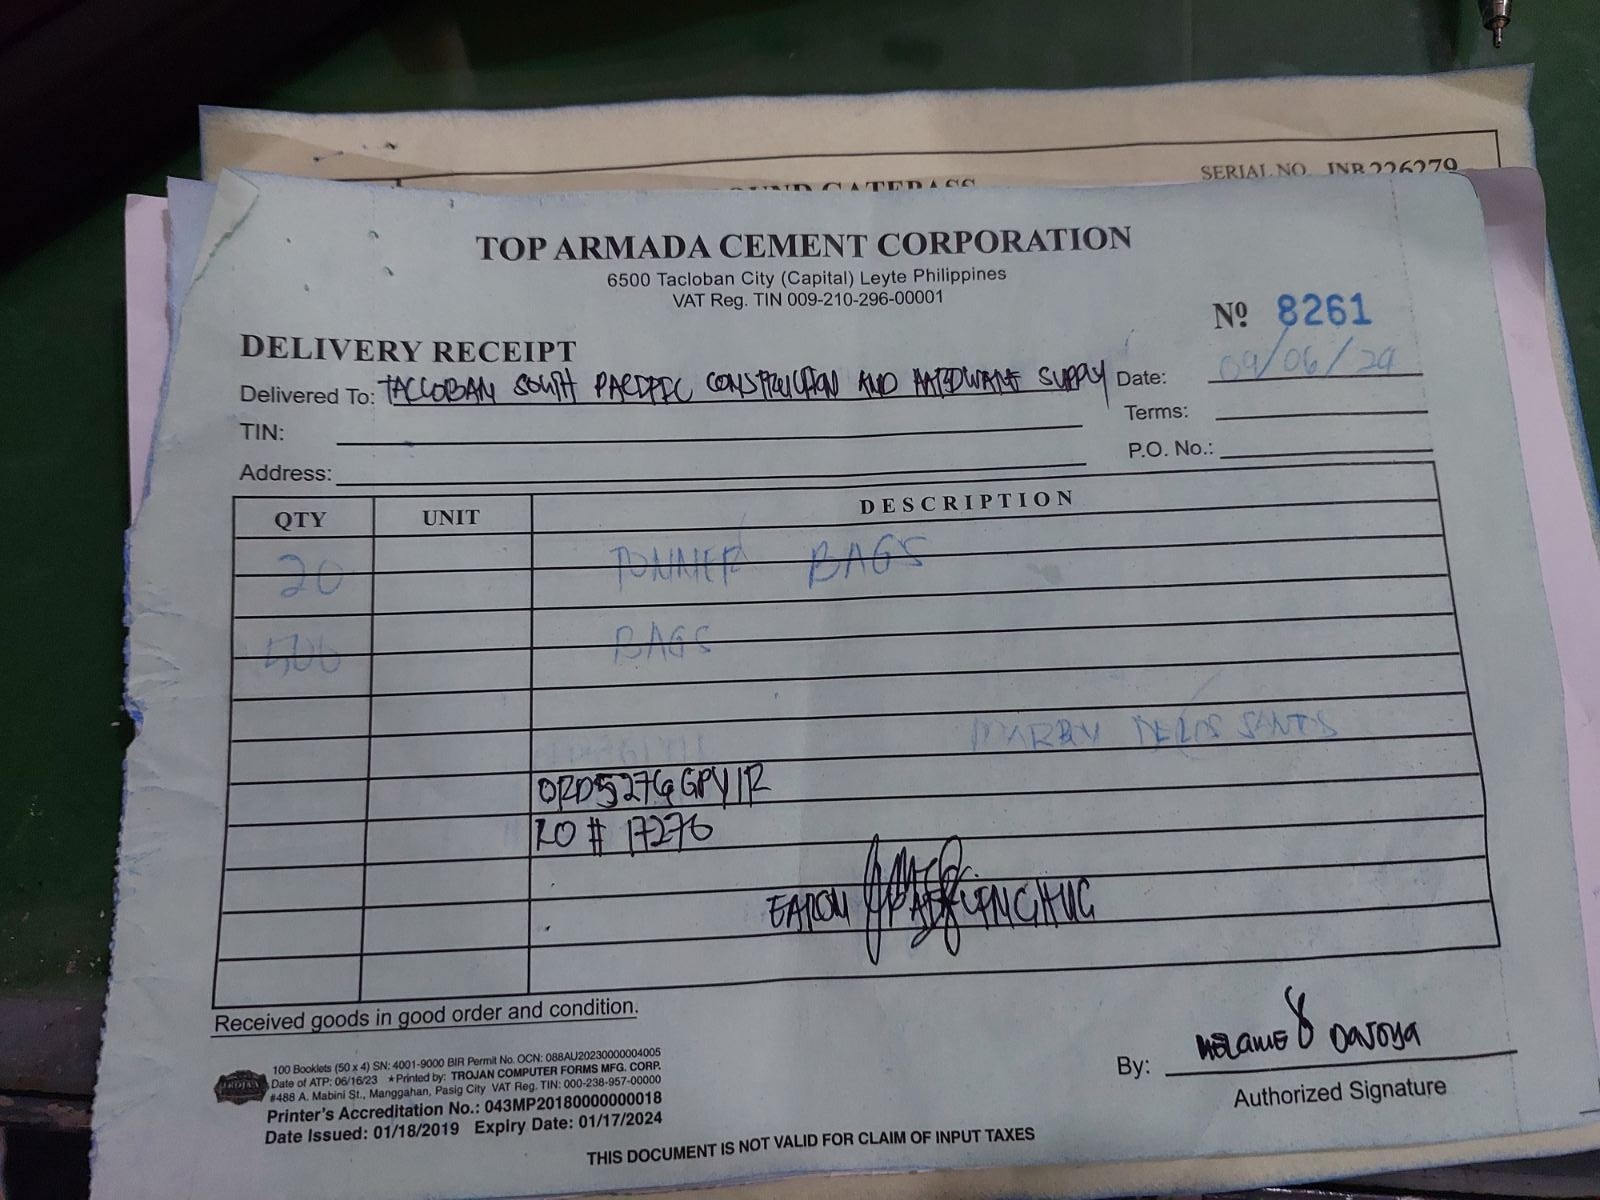 SERIAL NO. INB 226279
TOP ARMADA CEMENT CORPORATION
6500 Tacloban City (Capital) Leyte Philippines
VAT Reg. TIN 009-210-296-00001
Nº 8261
DELIVERY RECEIPT
Delivered To: TACLOBAN SOUTH PACIFIC CONSTRUCTION AND HARDWARE SUPPLY Date: 09/06/24
TIN: Terms:
Address: P.O. No.:
QTY UNIT DESCRIPTION
20 TONNER BAGS
500 BAGS
DELOS SANTOS
ORD5276GPY1R
RO # 17276
Received goods in good order and condition.
By: MELANIE DAVOYA
Authorized Signature
TROJAN
100 Booklets (50 x 4) SN: 4001-9000 BIR Permit No. OCN: 088AU20230000004005
Date of ATP: 06/16/23 ★Printed by: TROJAN COMPUTER FORMS MFG. CORP.
#488 A. Mabini St., Manggahan, Pasig City VAT Reg. TIN: 000-238-957-00000
Printer's Accreditation No.: 043MP20180000000018
Date Issued: 01/18/2019 Expiry Date: 01/17/2024
THIS DOCUMENT IS NOT VALID FOR CLAIM OF INPUT TAXES